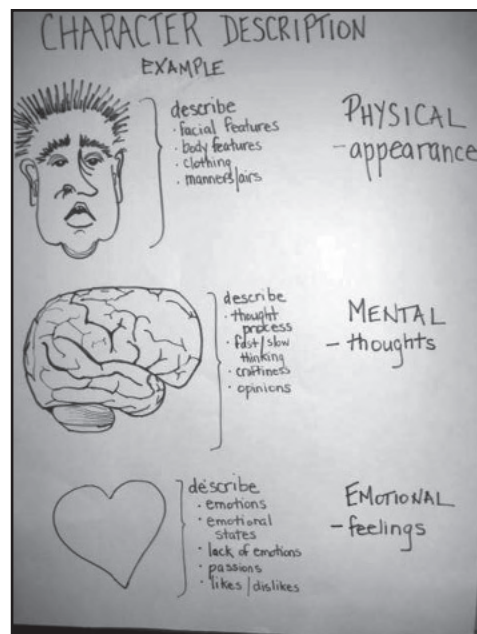 CHARACTER DESCRIPTION
EXAMPLE
describe
· facial features
· body features
· clothing
· manners/airs
PHYSICAL
- appearance
describe
· thought
process
· fast/slow
thinking
· craftiness
· opinions
MENTAL
- thoughts
describe
· emotions
· emotional
states
· lack of emotions
· passions
· likes/dislikes
EMOTIONAL
- feelings